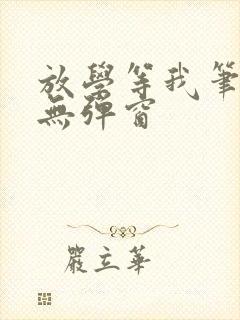 放學等我筆
無彈窗
嚴立華